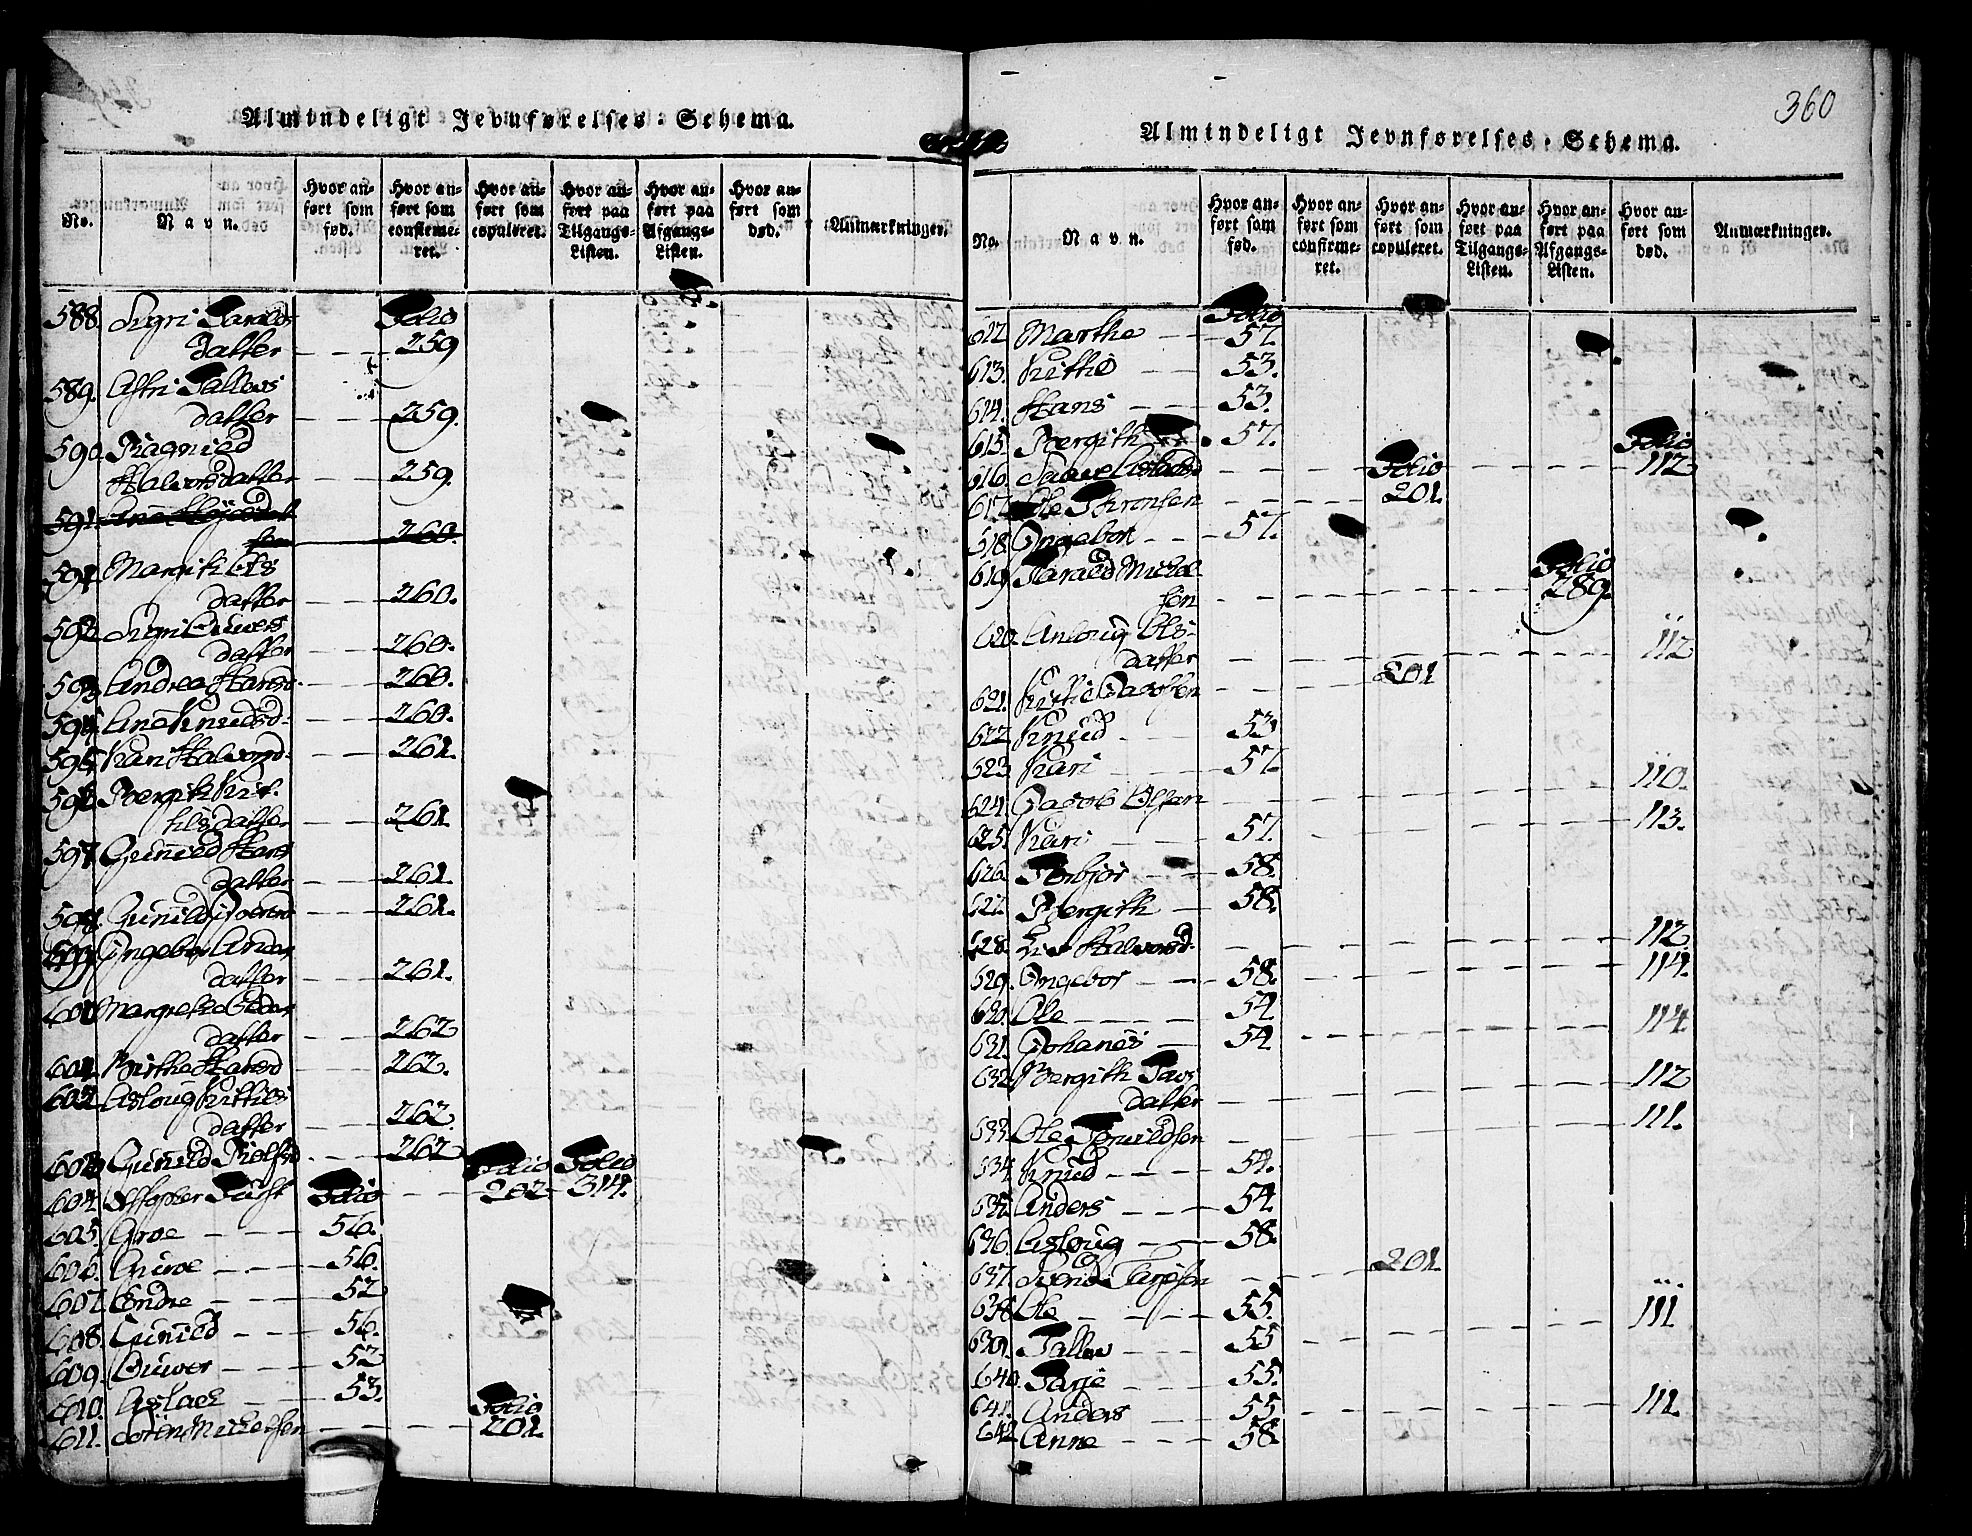 360
Almindeligt Jevnførelses-Schema.
No. Navn. Hvor anført som fød. Hvor anført som confirmeret. Hvor anført som copuleret. Hvor anført paa Tilgangs-Listen. Hvor anført paa Afgangs-Listen. Hvor anført som død. Anmærkninger.
588. Sigri Taralds Folio
datter 259
589. Tallevs
datter 259.
590. Ragnild
Halvorsdatter 259.
591.
260.
591. Margith Ols
datter 260.
592. Sigri Ouvers
datter 260.
593. Andrea Hansd. 260.
594. Ane Knudsd. 260.
595. Kari Halvorsd. 261.
596. Bergith Kit-
tilsdatter 261.
597. Gunild Hans
datter 261.
598. Gunild 261.
599. Ingebor Anders
datter 261.
600. Margrethe
datter 262
601. Birthe Hansd 262.
602. Asloug Kittils
datter 262.
603. Gunild 262 Folio Folio
604. Folio 202. 314.
605. Groe 56.
606. Guroe 56.
607. Endre 52
608. Gunild 56.
609. Ouver 52
610. Aslack 53. Folio
611. Sören Nielsen 201.
Almindeligt Jevnførelses-Schema.
No. Navn. Hvor anført som fød. Hvor anført som confirmeret. Hvor anført som copuleret. Hvor anført paa Tilgangs-Listen. Hvor anført paa Afgangs-Listen. Hvor anført som død. Anmærkninger.
Folio
612. Marthe 57.
613. Kittil 53.
614. Hans 53.
615. Bergith 57. Folio
616. Folio 112
617. Ole 201.
518. Ingebor 57.
619. Tarald Michel- Folio
sen 289.
620. Anloug Ols-
datter 112
621. Kittil 201
622. Knud 53
523. Kari 57.
624. Jacob Olsen 110.
625. Kari 57. 113.
626. Torbjör 58.
627. Bergith 58.
628. Liv Halvorsd. 112.
629. Ingebor 58. 114.
630. Ole 54
631. Johanes 54 114
632. Bergith
datter 112
633. Ole 111.
634. Knud 54.
635. Anders 54.
636. Asloug 58.
637. Svend Tarjesen 201.
638. Ole 55. 111
639. Tallev 55
640. Tarje 55.
641. Anders 55 111.
642 Anne 58